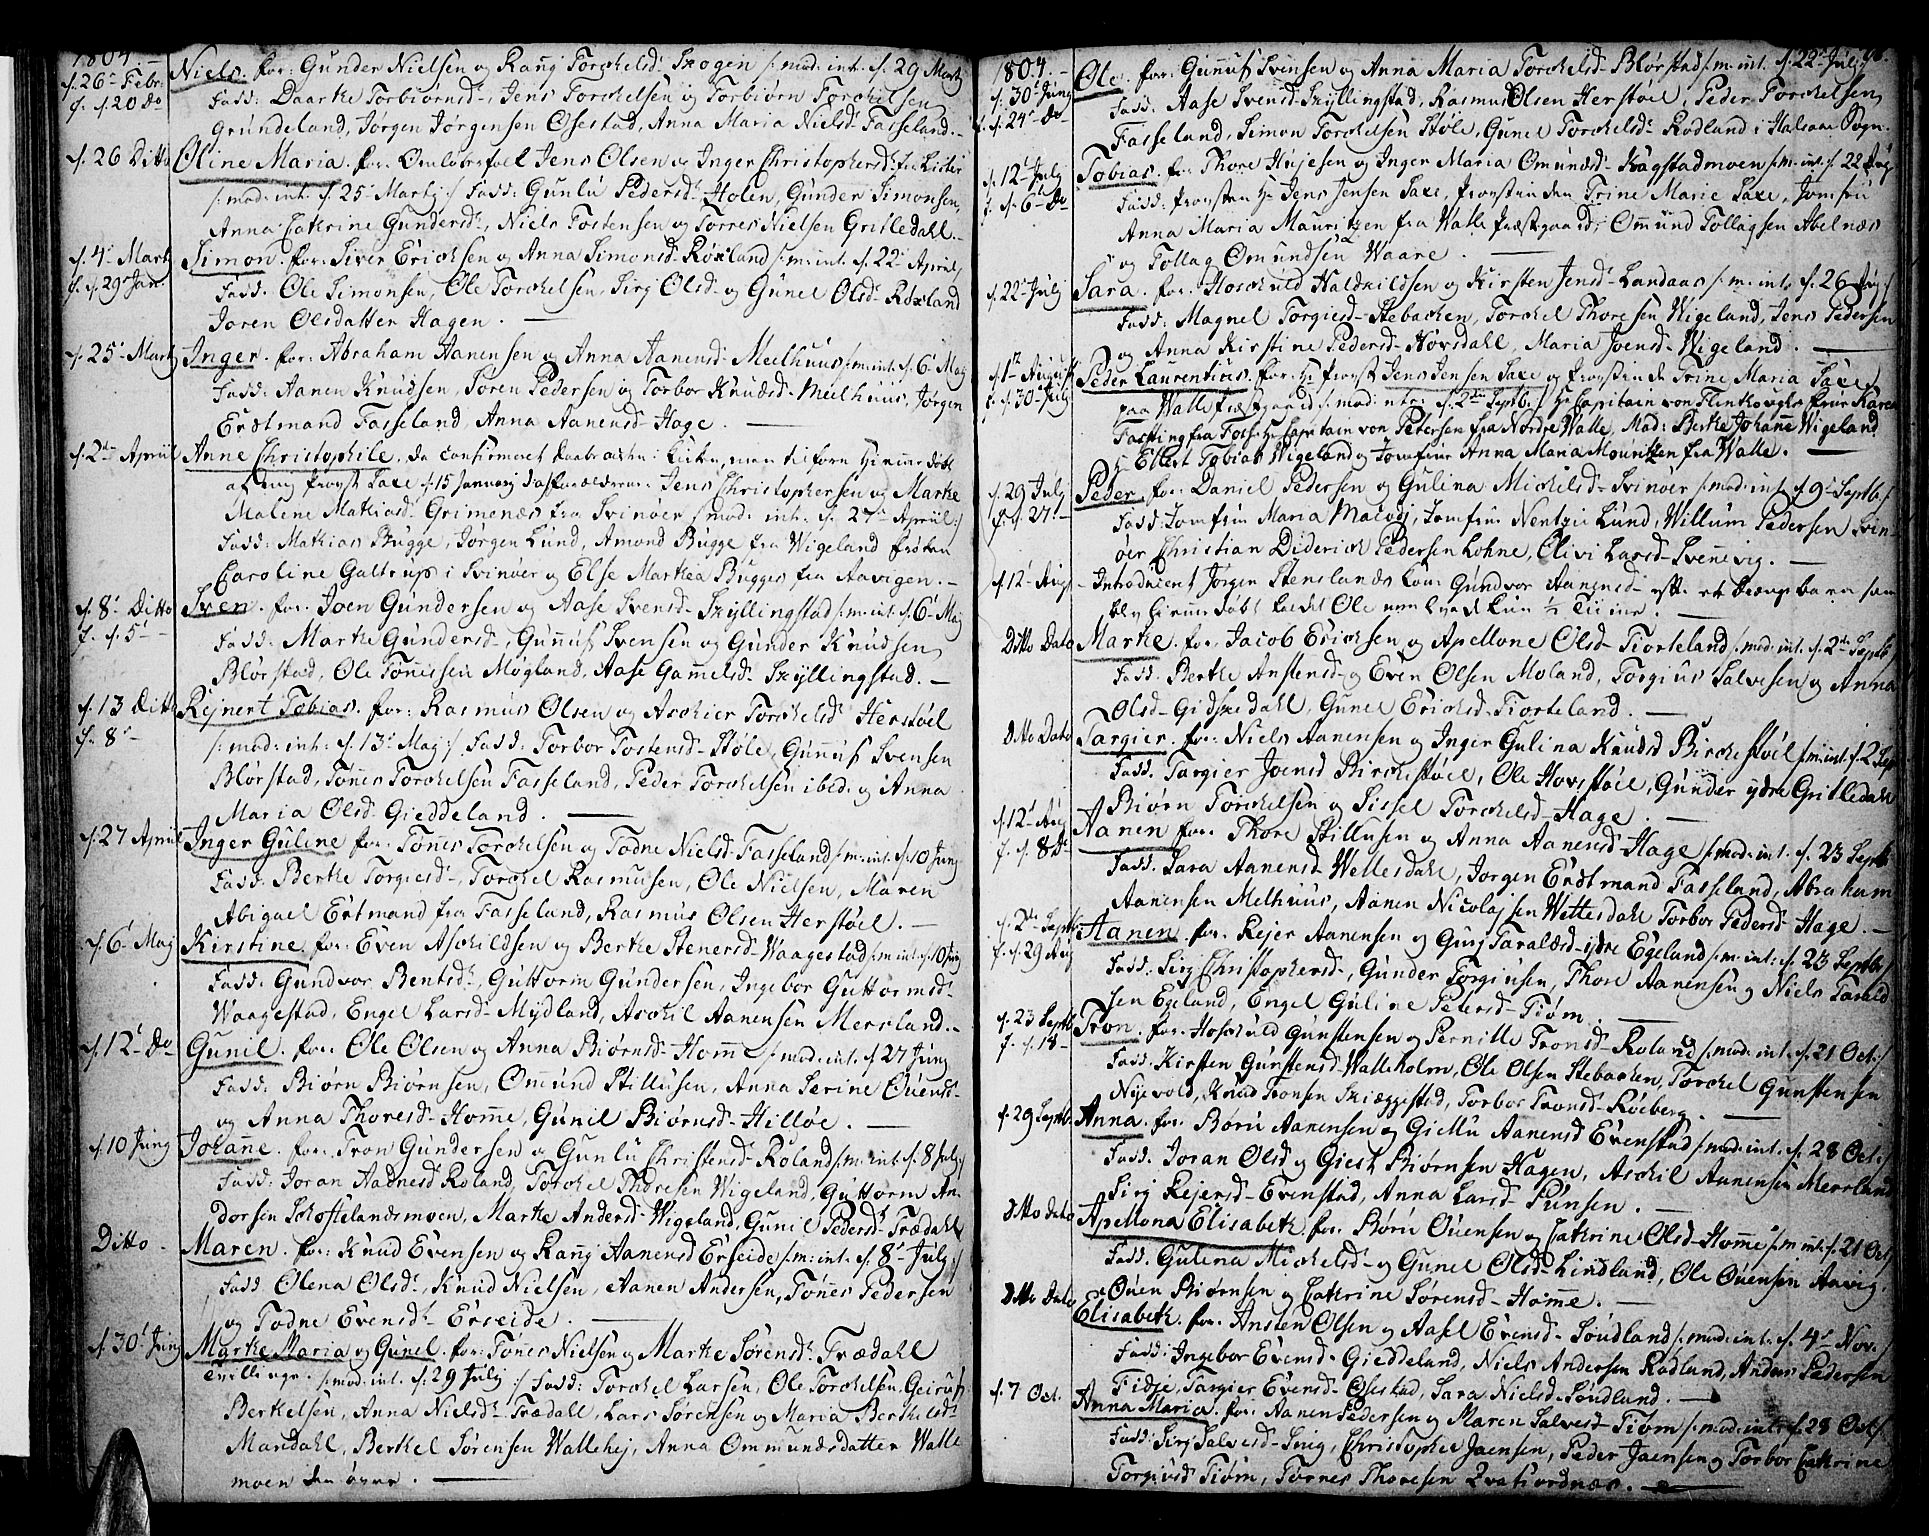 1804.
d. 26 Febr. Niels. for: Gunder Nielsen og Rang Torkelsd. Skogen /: mod: int. d. 29 Martj
f. d. 20 do Fadd: Daarthe Torbiørnsd., Jens Torchelsen og Torbiørn Torchelsen
Grundeland, Jørgen Jørgensen Øsestad, Anna Maria Nielsd. Fasseland. -
d. 26 Ditto Oline Maria. for: Omløbsfolk Jens Olsen og Inger Christophersd. fra Lister
/: mod: int. d. 25 Martj :/ Fadd: Gunlu Pedersd. Holen, Gunder Simonsen,
Anna Cathrine Gundersd., Niels Tostensen og Torres Nielsen Gritledahl. -
d. 4 Mart. Simon. for: Siver Erichsen og Anna Simonsd. Røxland /: m: int. d. 22 April
f. d. 29 Jan. Fadd: Ole Simonsen, Ole Torchelsen, Sirj Olsd. og Gunel Olsd. Røxland
Joren Olsdatter Hagen. -
d. 25 Martj Inger. for: Abraham Aanensen og Anna Aanensd. Meelhuus /: m: int. d. 6 Maj
Fadd: Aanen Knudsen, Søren Pedersen og Torbor Knudsd. Meelhuus, Jørgen
Erdtmand Fasseland, Anna Aanensd. Hage. -
d. 2den Apriil Anne Christophile, da confirmeret Daabs acten i Kirken, men tilforn hjemme døbt
af mig Provst Saxe d. 15 Januarij Forældrene: Jens Christophersen og Marthe
Malene Mathiasd. Grimenæs fra Svinøer /: mod: int: d. 27 Apriil :/
Fadd: Mathias Bugge, Jørgen Lund, Amond Bugge fra Wigeland Frøken
Caroline Galtrup i Svinøer og Else Marthea Bugges fra Aavigen. -
d. 8 Ditto Sven. for: Joen Gundersen og Aase Svensd. Skyllingstad /: m: int. d. 6 Maj
f. d. 5 - Fadd: Marthe Gundersd., Gunuf Svensen og Gunder Knudsen
Blørstad, Ole Tønnessen Møgland, Aase Gammelsd. Skyllingstad. -
d. 13 Ditto Rejnert Tobias. for: Rasmus Olsen og Aschier Torchelsd. Herstøel
f. 8 - /: mod: int: d. 13 Maj :/ Fadd: Torbor Tostensd. Støle, Gunuf Svensen
Blørstad, Tønes Torchelsen Fasseland, Peder Torchelsen ibid: og Anna
Maria Olsd. Gieddeland. -
d. 27 Apriil Inger Guline for: Tønes Torchelsen og Todne Nielsd. Fasseland /: m: int. d. 10 Junj
Fadd: Berthe Torgiesd., Torchel Rasmusen, Ole Nielsen, Maren
Abigael Ertmand fra Fasseland, Rasmus Olsen Herstøel. -
d. 6 Maj Kirstine. for: Even Aschildsen og Berthe Stenersd. Waagestad /: m: int. d. 10 Junj
Fadd: Gundvor Bentsd., Guttorm Gundersen, Ingebor Guttormsd.
Waagestad, Engel Larsd. Mydland, Aschil Aanensen Merrland. -
d. 12 do Gunil. for: Ole Olsen og Anna Biørnsd. Homm /: mod: int. d. 27 Junj
Fadd: Biørn Biørnsen, Omund Stillusen, Anna Serine Ouensd.
og Anna Thoresd. Homme, Gunil Biørnsd. Hilløe. -
d. 10 Junj Johanne. for: Tron Gundersen og Gunlu Christensd. Roland /: m: int. d. 8 Julj :/
Fadd: Joran Aadnesd. Roland, Torchel Thoresen Wigeland, Guttorm An-
dorsen Schoftelandsmoen, Marthe Andersd. Wigeland, Gunil Pedersd. Trædahl
Ditto - Maren. for: Knud Evensen og Rang Aanensd. Erseide /: m: int. d. 8 Julj :/
Fadd Olena Olsd., Knud Nielsen, Aanen Andersen, Tønes Pedersen
og Todne Evensd. Erseide. -
d. 30 Junj Marthe Maria og Gunel. for: Tønes Nielsen og Marthe Sørensd. Trædahl
Tvillinger. /: mod: int. d. 29 Julj :/ Fadd: Torchel Larsen, Ole Torchelsen,
Berthelsen, Anna Nielsd. Trædahl, Lars Sørensen og Maria Berthelsd.
Mandahl, Berthel Sørensen Wallehej, Anna Ommundsdatter Walle
moen den øvre. -
1804.
d. 30 Junj Ole. for: Gunuf Svensen og Anna Maria Torchelsd. Blørstad /: m: int. d. 22 Julj
f. d. 24 do Fadd: Aase Svensd. Skyllingstad, Rasmus Olsen Herstøel, Peder Torchelsen
Fasseland, Simon Torchelsen Støle, Gunel Torchelsd. Rødland i Halsaae Sogn.
d. 12 Julj Tobias. for: Thore Hujesen og Inger Maria Omundsd. Kragstadmoen /: m: int: d. 22 Aug
f. d. 6 do Fadd: Provsten Hr Jens Jensen Saxe, Provstinden Trine Marie Saxe, Jomfru
Anna Maria Mauritzen fra Walle Præstgaard, Omund Tollagsen Abelnæs
og Tollag Omundsen Waare. -
d. 22 Julj Sara. for: Hoschuld Haldkildsen og Kirsten Jensd. Landaas /: m: int: d. 26 Aug :/
Fadd: Magnel Torgiesd. Stebacken, Torchel Thoresen Wigeland, Jens Pedersen
og Anna Kirstine Pedersd. Hovsdahl, Maria Joensd. Wigeland. -
d. 1st August Peder Laurentius. for: Hr Provst Jens Jensen Saxe og Provstinde Trine Maria Saxe
f. d. 30 Julj paa Walle Præstgaard /: mod: intr: d. 2den Septb. :/ Hr Capitain von Frue Karen
Fasting fra Hr Capitain von Petersen fra Nordre Walle, Mad: Berthe Johanne Wigeland
Hr Ellert Tobias Wigeland og Jomfrue Anna Maria Mouritzen fra Walle. -
d. 29 Julj Peder. for: Daniel Pedersen og Gulina Michelsd. Svinøer /: mod: int. d. 9 Septb. /
f. d. 27 - Fadd: Jomfrue Maria Macodj, Jomfrue Nentzie Lund, Willum Pedersen Svin-
øer Christian Diderich Pedersen Lohne, Olivi Larsd. Svennevig. -
d. 12 Aug. - Introduceret Jørgen Stenslands Kone Gundvor Aanensd. efter et Drenge barn som
blev hjemmedøbt kaldet Ole men levede kun 1/2 Time. -
Ditto Dato Marthe. for: Jacob Erichsen og Apellone Olsd. Tiorteland /: mod: int. d. 2den Septb.
Fadd: Berthe Anstensd. og Even Olsen Moland, Torgius Salvesen og Anna
Olsd. Gidskedahl, Gunel Erichsd. Tiorteland. -
Ditto Dato Targier. for: Niels Aanensen og Inger Gulina Knudsd. Birchestøel /: m: int: d. 2 Sept
Fadd: Targier Joensd. Birchestøel, Ole Hovstøel, Gunder ydre Gritledahl
Biørn Torchelsen og Sissel Torchelsd. Hage. -
d. 12 Aug Aanen for: Thore Stillusen og Anna Aanensd. Hage /: mod: int. d. 23 Septb.
f. d. 8 do Fadd: Sara Aanensd. Wettesdahl, Jørgen Erdtmand Fasseland, Abraham
Aanensen Melhuus, Aanen Nicolajsen Wettesdahl Torbor Pedersd. Hage. -
d. 2den Septb. Aanen. for: Rejer Aanensen og Gurj Taraldsd. ydre Egeland /: m: int: d. 23 Septb. /
f. d. 29 Aug Fadd: Sirj Christophersd., Gunder Torgiusen, Thore Aanensen og Niels Tarald
sen Egeland, Engel Guline Petersd. Tiøm. -
d. 23 Septb. Tron. for: Hoskuld Gunstensen og Pernille Tronsd. Roland /: mod: int. d. 21 Oct :/
f. d. 18 - Fadd: Kirsten Gunstensd. Walleholm, Ole Olsen Stebacken, Torchel Gunstensen
Nyevold, Knud Tronsen Skieggestad, Torbor Tronsd. Røeberg. -
d. 29 Septb. Anna. for: Børu Aanensen og Giellu Aanensd. Evenstad /: mod: int: d. 28 Oct :/
Fadd: Joran Olsd. og Giest Biørnsen Hagen, Aschil Aanensen Merrland
Sirj Rejersd. Evenstad, Anna Larsd. Punsen. -
Ditto dato Apellona Elisabeth for: Børu Ouensen og Cathrine Olsd. Homme /: m: int: d. 21 Oct /
Fadd: Gulena Michelsd. og Gunel Olsd. Lindland, Ole Ouensen Aavig.
Ouen Biørnsen og Cathrine Sørensd. Homme. -
Ditto Dato Elisabeth. for: Ansten Olsen og Aasel Evensd. Søndland /: mod: int: d. 4 Nov: /
Fadd: Ingebor Evensd. Gieddeland, Niels Andersen Rødland, Anders Pedersen
Fidje, Targier Evensd. Øsestad, Sara Nielsd. Søndland. -
d. 7 Oct. Anna Maria. for: Aanen Pedersen og Maren Salvesd. Tiøm /: mod: int: d. 28 Oct /.
Fadd: Sirj Salvesd. Snig, Christopher Jaensen, Peder Jaensen og Torbor Cathrine
Torgiusd. Tiøm, Tørres Thoresen Qvafiordnæs. -